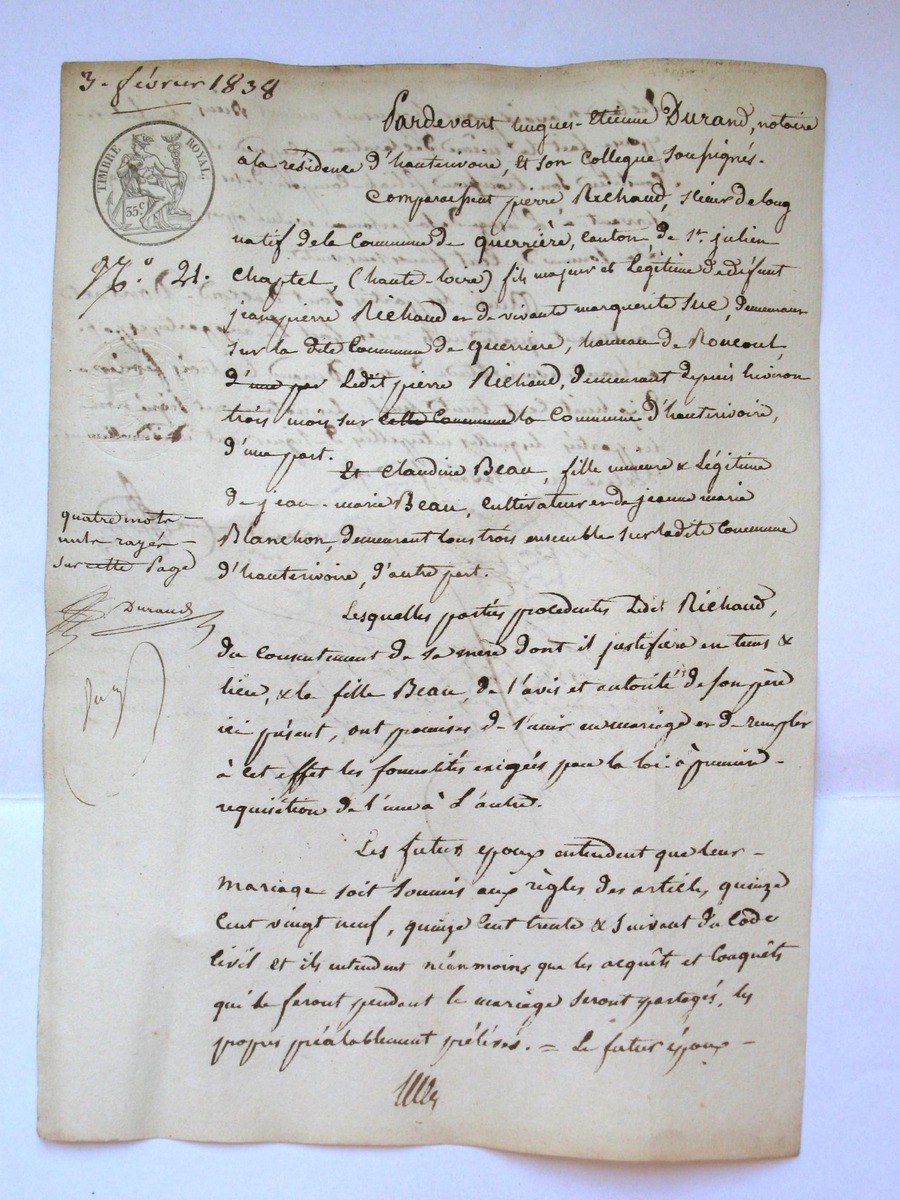 3. février 1838
Pardevant hugues-Etienne Durand, notaire
à la résidence d'hauterivoire, et son Collegue soussignés.
TIMBRE ROYAL.
35 c
Comparaissent pierre Richaud, scieur de long
natif de la Commune de querrière, canton, de st. julien
N.° 21.
Chaptel, (haute-loire) fils majeur et légitime de défunt
jean pierre Richaud et de vivante marguerite Sue, demeurant
sur la dite Commune de querriere, hameau de Roncout
d'une par Ledit pierre Richaud, demeurant depuis environ
trois mois sur cette Commune la Commune d'hauterivoire,
d'une part.
Et Claudine Beau, fille mineure & Légitime
de jean-marie Beau, cultivateur et de jeanne marie
Blanchon, demeurant tous trois ensemble sur ladite Commune
d'hauterivoire, d'autre part.
quatre mots
nuls rayés
sur cette Page
Durand
Lesquelles parties procedentes Ledit Richaud,
du consentement de sa mère dont il justifiera en tems &
lieu, & la fille Beau, de l'avis et autorité de son père
ici présent, ont promises de s'unir en mariage et de remplir
à cet effet les formalités exigées par la loi à premiere
requisition de l'une à L'autre.
Les futurs epoux entendent que leur
mariage soit soumis aux règles des articles quinze
cent vingt neuf, quinze cent trente & suivant du Code
Civil et ils entendent néanmoins que les acquêts et Conquêts
qui se feront pendant le mariage seront partagés, les
propres préalablement prélevés. = Le futur époux